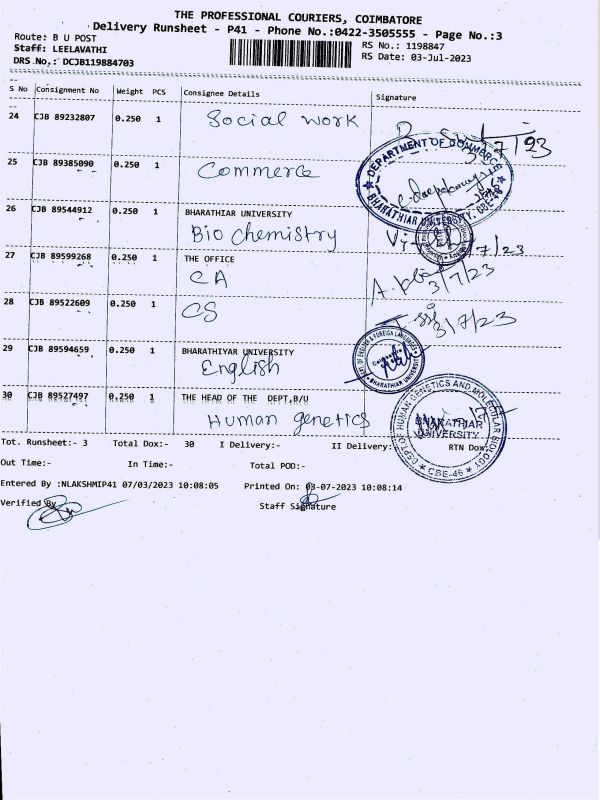 THE PROFESSIONAL COURIERS, COIMBATORE
Delivery Runsheet - P41 - Phone No.:0422-3505555 - Page No.:3
Route: B U POST
RS No.: 1198847
Staff: LEELAVATHI
RS Date: 03-Jul-2023
DRS No.: DCJB119884703
S No Consignment No Weight PCS Consignee Details Signature
24 CJB 89232807 0.250 1 Social work
7/23
25 CJB 89385090 0.250 1 Commerce
DEPARTMENT OF COMMERCE
BHARATHIAR UNIVERSITY, CBE-46
26 CJB 89544912 0.250 1 BHARATHIAR UNIVERSITY
Bio chemistry
7/23
27 CJB 89599268 0.250 1 THE OFFICE
CA
3/7/23
28 CJB 89522609 0.250 1 CS
3/7/23
29 CJB 89594659 0.250 1 BHARATHIYAR UNIVERSITY
English
DEPT. OF ENGLISH & FOREIGN LANGUAGES
Coimbatore
BHARATHIAR UNIVERSITY
30 CJB 89527497 0.250 1 THE HEAD OF THE DEPT,B/U
Human genetics
DEPT. OF HUMAN GENETICS AND MOLECULAR BIOLOGY
BHARATHIAR
UNIVERSITY
CBE-46
Tot. Runsheet:- 3 Total Dox:- 30 I Delivery:- II Delivery: RTN Dox
Out Time:- In Time:- Total POD:-
Entered By :NLAKSHMIP41 07/03/2023 10:08:05 Printed On: 03-07-2023 10:08:14
Verified By
Staff Signature